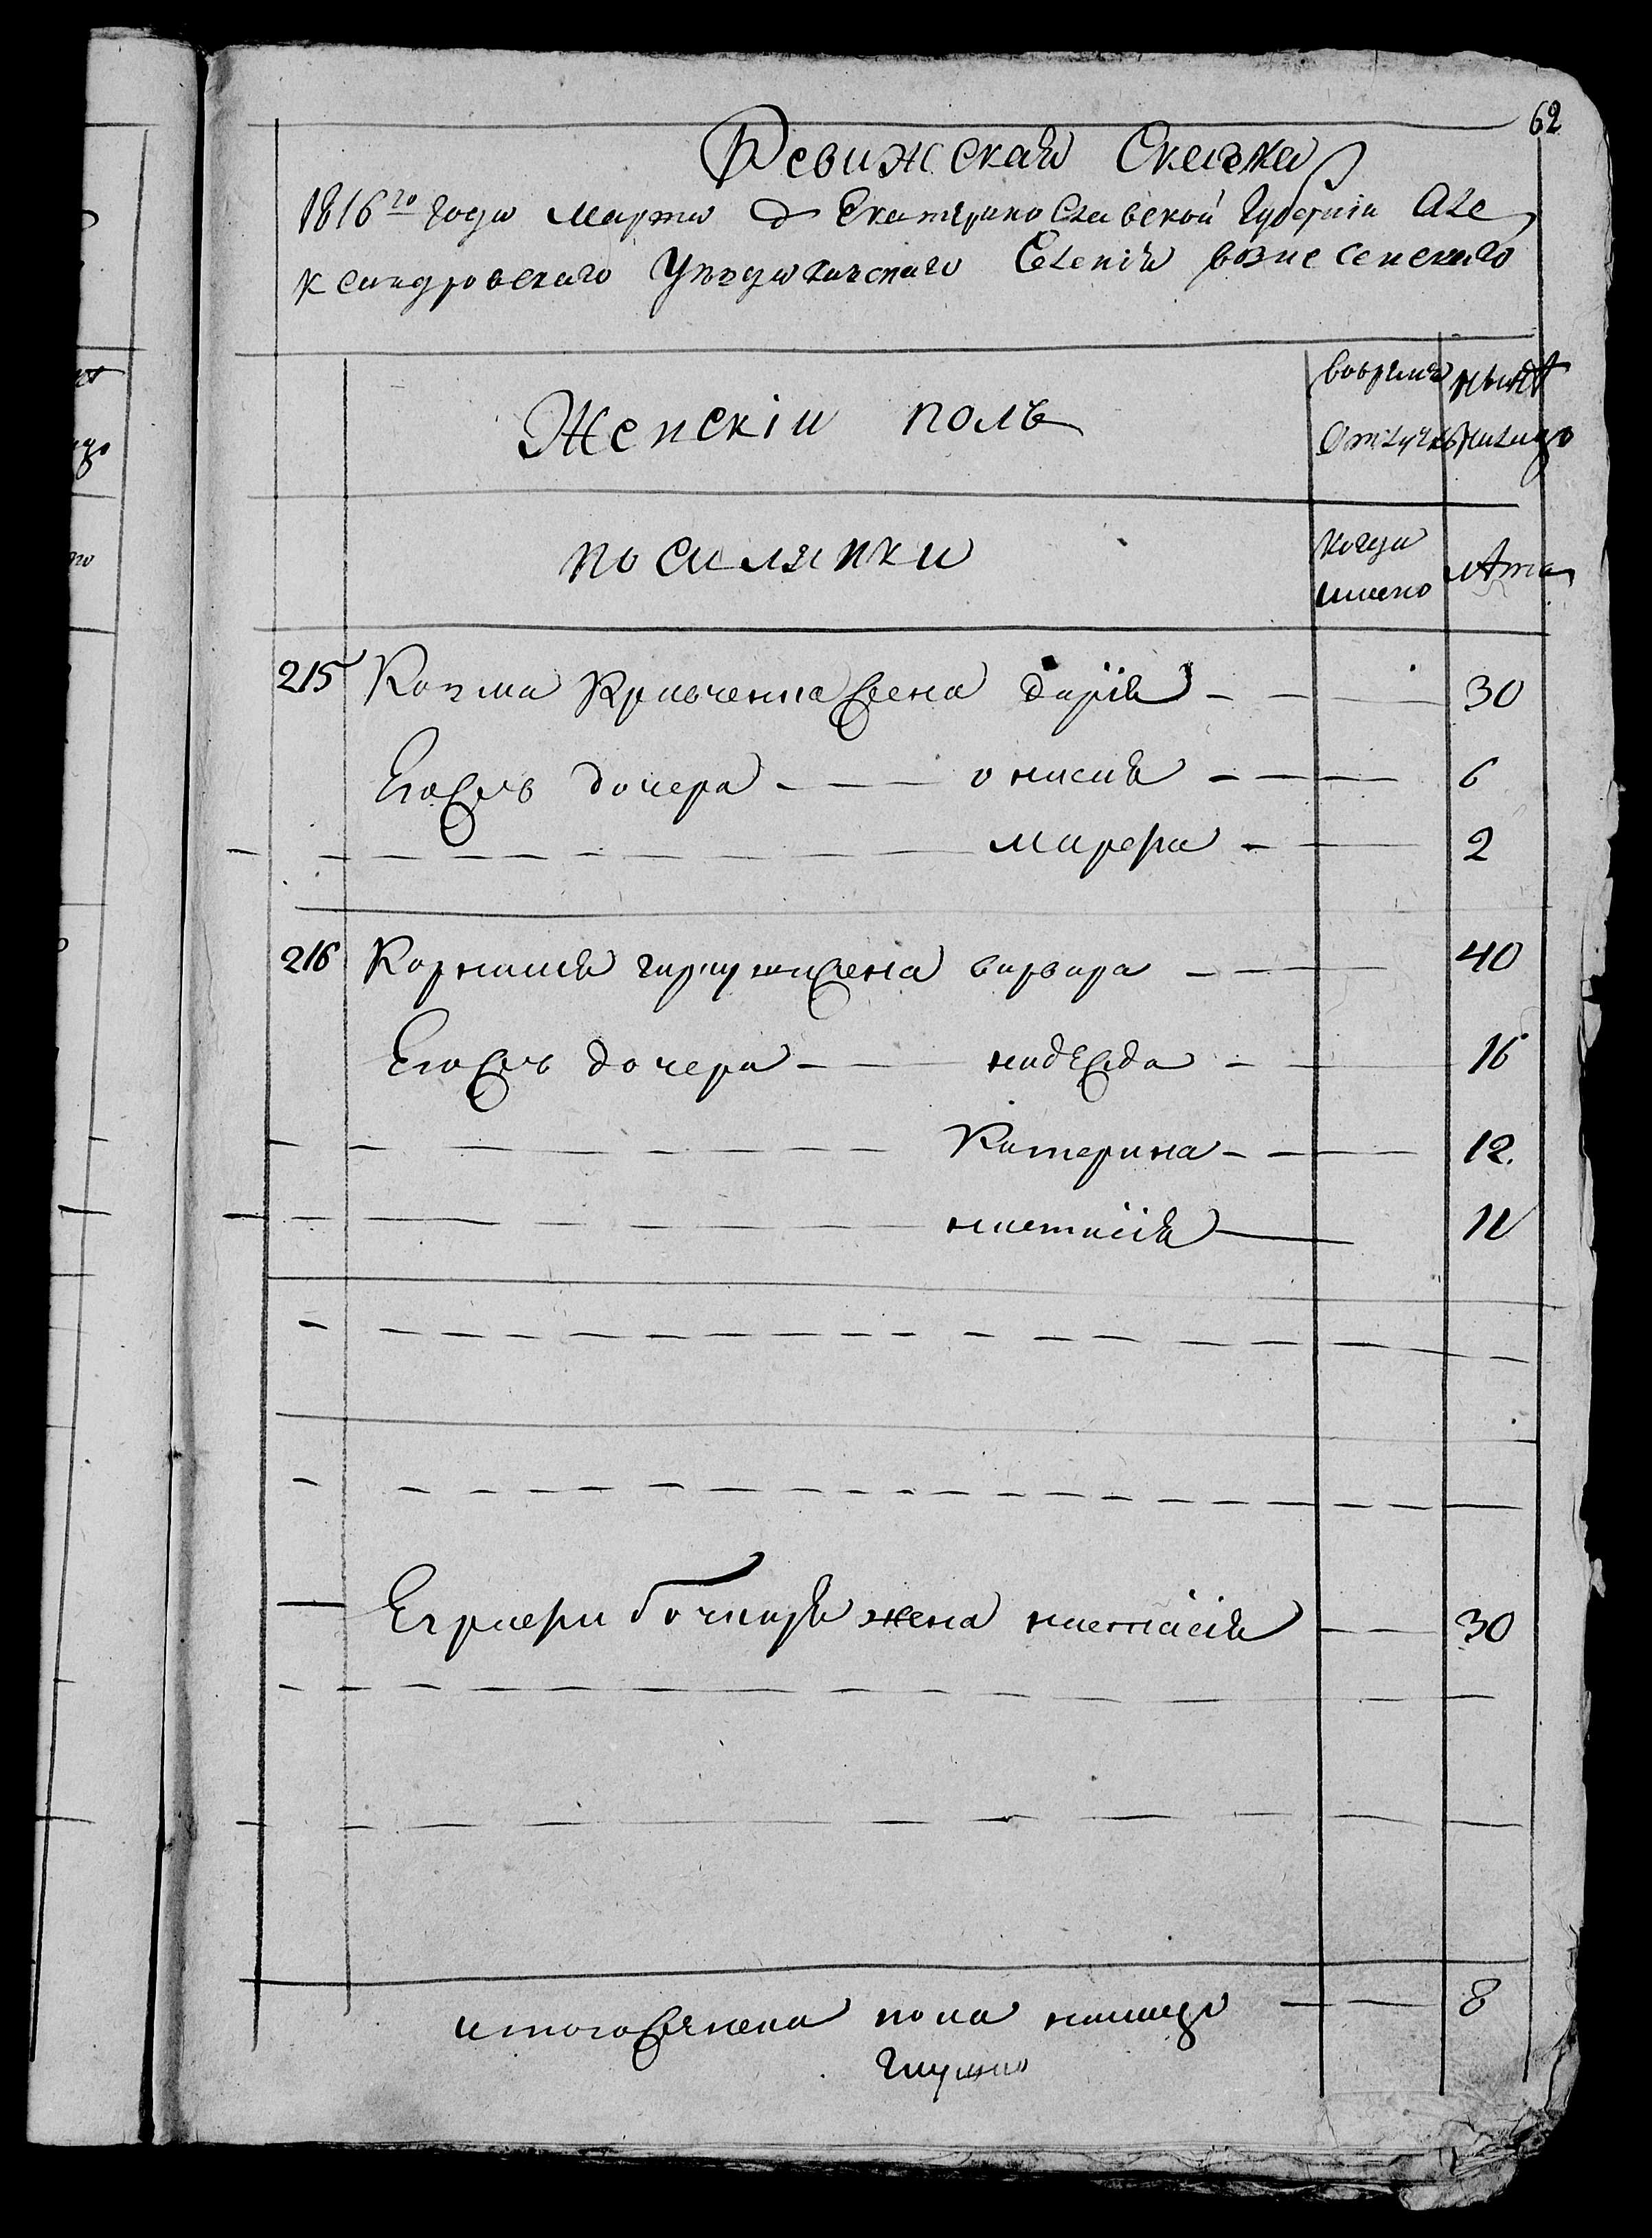 62
Ревижская Сказка
1816го года Марта д Екатерино Славской Губернии Але
ксандровского Уезда казенаго Селения вознесенскаго
Женскiи полъ
вовремя
отлучкъ
нынѣ
налицо
поселянки
когда
имено
лѣта
215 Козма Кравченка жена дария 30
Егожъ дочера онисия 6
марфа 2
216 Корнилия жена варвара 40
Егожъ дочера надежда 16
Катерина 12.
настасия 11
жена настасия 30
итого женска пола налицо 8
душъ